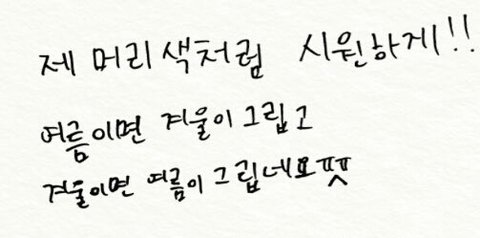 제 머리색처럼 시원하게!!
여름이면 겨울이 그립고
겨울이면 여름이 그립네요ㅍㅍ